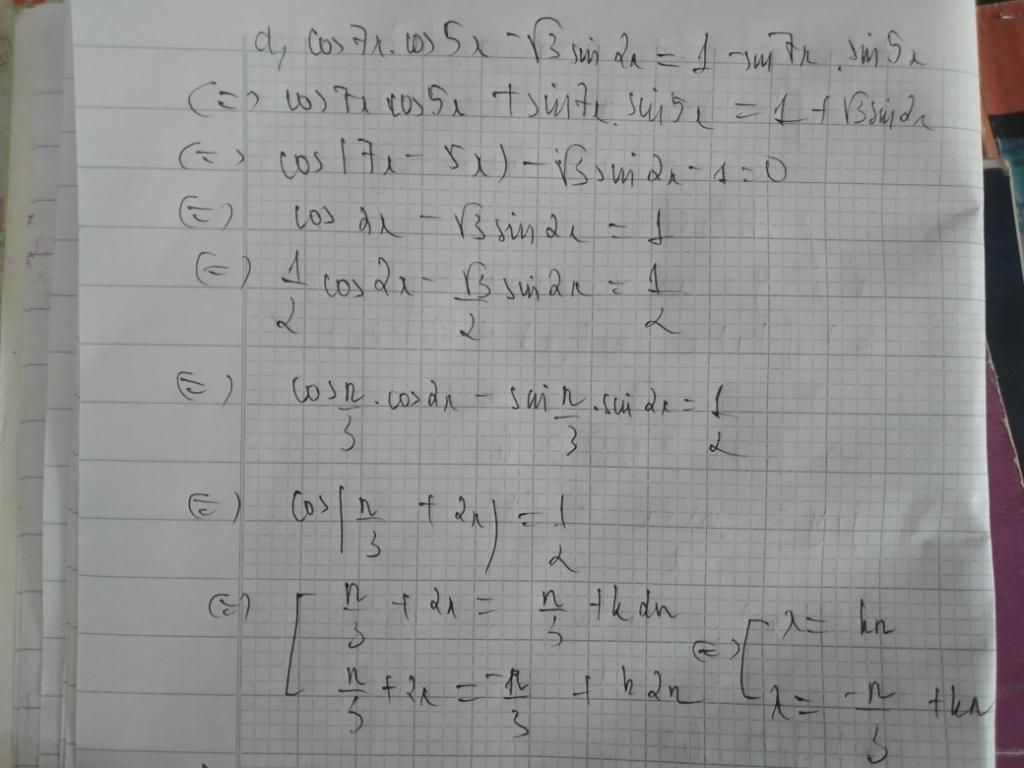 d, cos7x.cos5x - √3 sin2x = 1 - sin7x.sin5x
(=) cos7x cos5x + sin7x.sin5x = 1 + √3sin2x
(=) cos(7x - 5x) - √3sin2x - 1 = 0
(=) cos2x - √3sin2x = 1
(=) 1/2 cos2x - √3/2 sin2x = 1/2
(=) cos π/3 . cos2x - sin π/3 . sin2x = 1/2
(=) cos(π/3 + 2x) = 1/2
(=) [ π/3 + 2x = π/3 + k2π (=) [ x = kπ
π/3 + 2x = -π/3 + k2π x = -π/3 + kπ